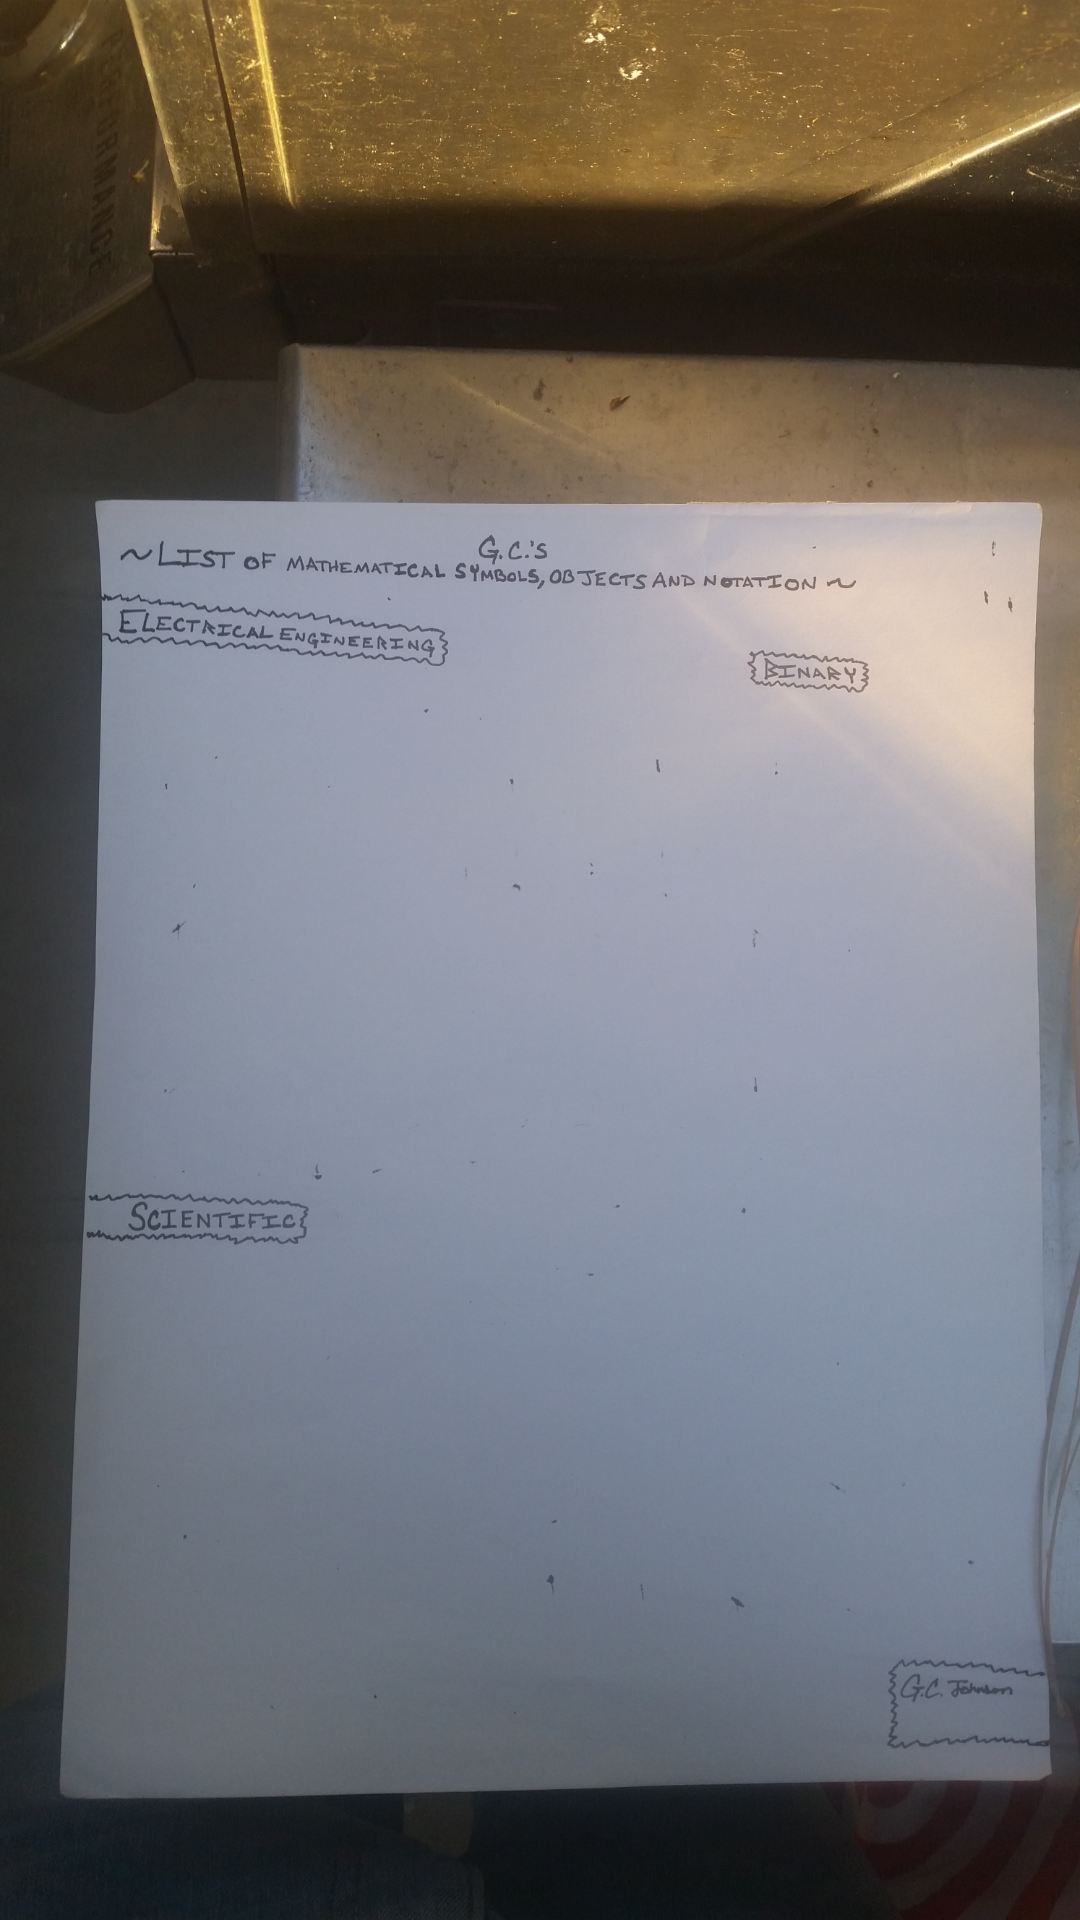 G.C.'s
~LIST OF MATHEMATICAL SYMBOLS, OBJECTS AND NOTATION~
ELECTRICAL ENGINEERING
BINARY
SCIENTIFIC
G.C. Johnson